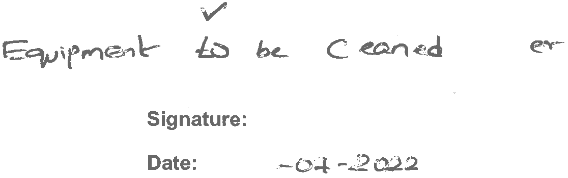 ✓
Equipment to be Cleaned er
Signature:
Date: -07-2022